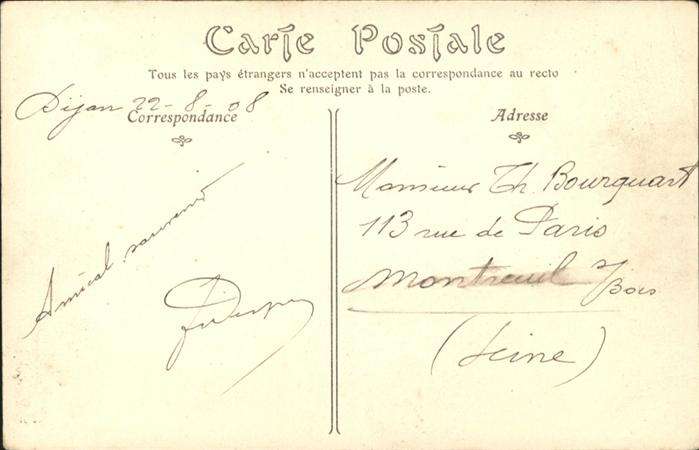 Carte Postale
Tous les pays étrangers n'acceptent pas la correspondance au recto
Se renseigner à la poste.
Dijon 22-8-08
Correspondance
Amical souvenir
Adresse
Monsieur Th. Bourquart
113 rue de Paris
Montreuil s/Bois
(Seine)